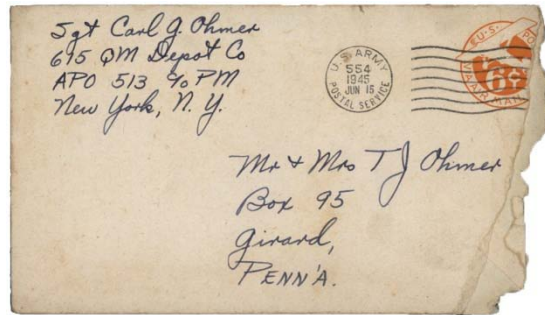 Sgt Carl G. Ohmer
695 QM Depot Co
APO 513 % PM
New York, N. Y.
U.S. ARMY
554
1945
JUN 15
POSTAL SERVICE
U.S. PO
6¢
VIA AIR MAIL
Mr + Mrs T J Ohmer
Box 95
Girard,
PENN'A.